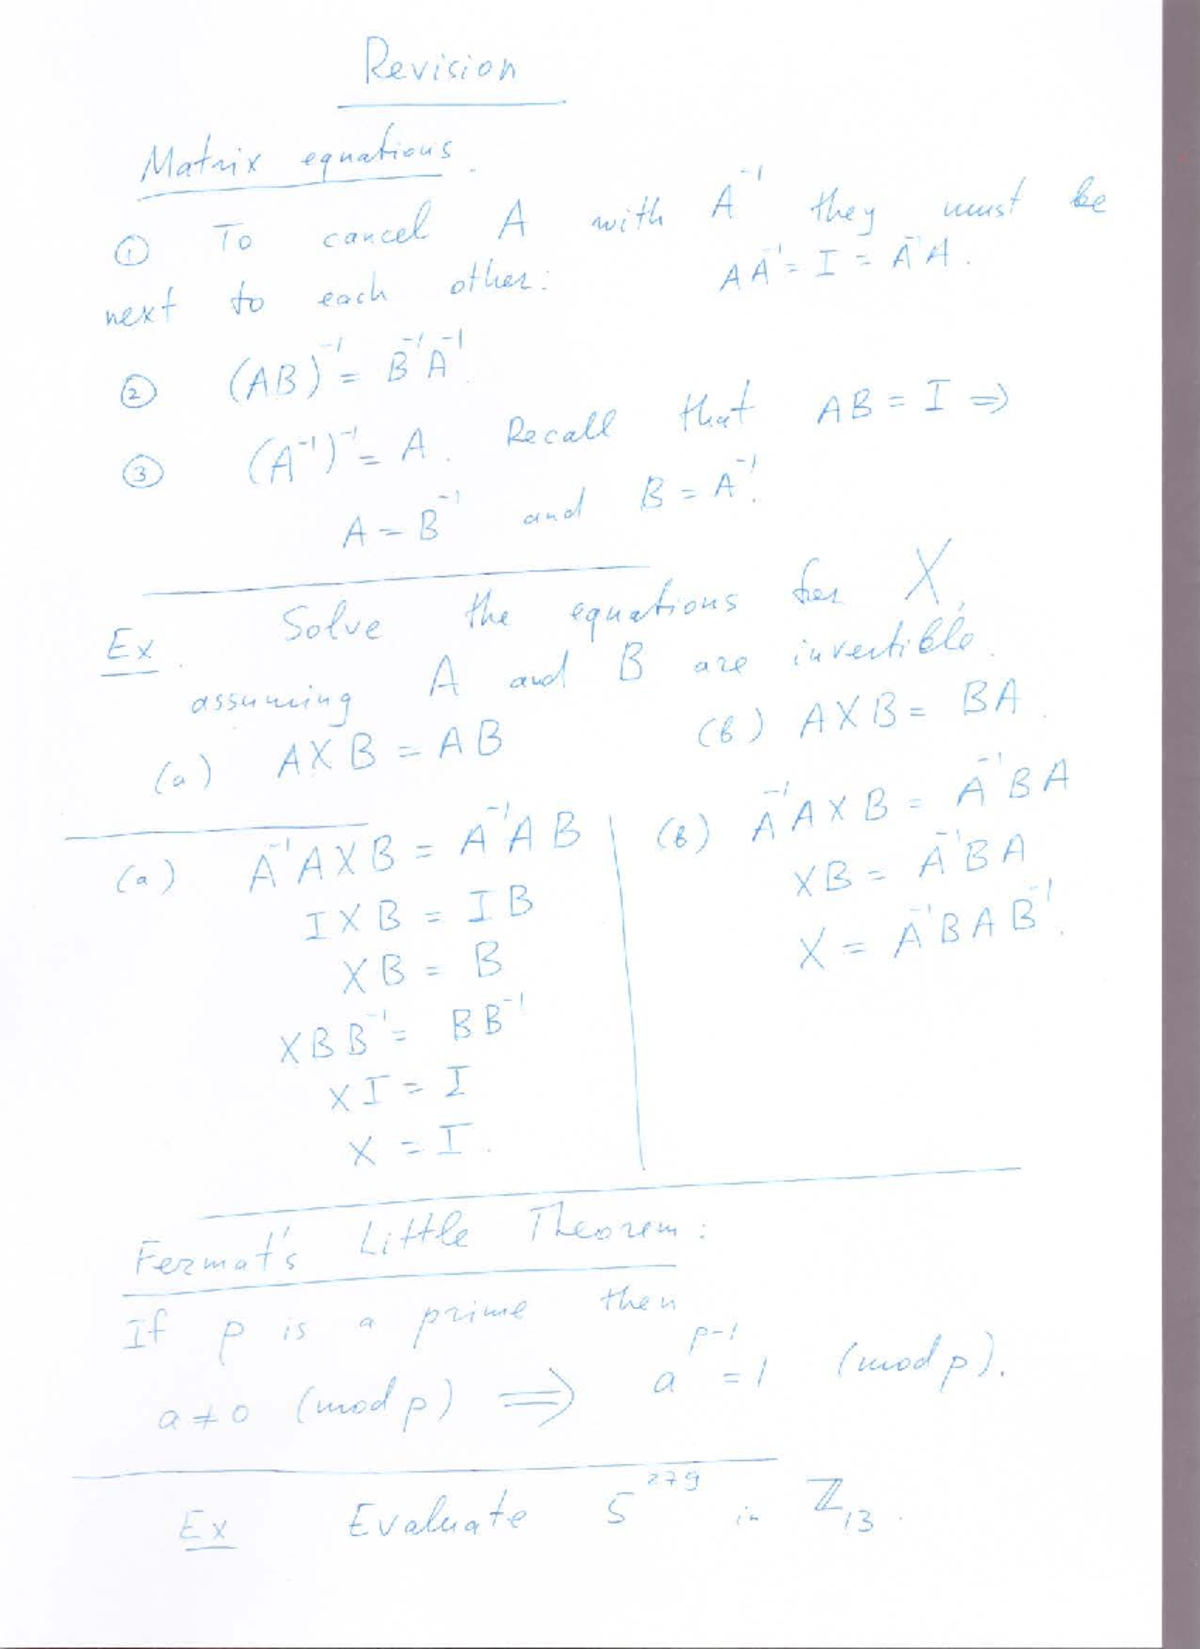 Revision
Matrix equations.
① To cancel A with A⁻¹ they must be
next to each other: AA⁻¹ = I = A⁻¹A.
② (AB)⁻¹ = B⁻¹A⁻¹.
③ (A⁻¹)⁻¹ = A. Recall that AB = I ⇒
A = B⁻¹ and B = A⁻¹.
Ex. Solve the equations for X,
assuming A and B are invertible.
(a) AXB = AB (b) AXB = BA.
(a) A⁻¹AXB = A⁻¹AB
IXB = IB
XB = B
XBB⁻¹ = BB⁻¹
XI = I
X = I.
(b) A⁻¹AXB = A⁻¹BA
XB = A⁻¹BA
X = A⁻¹BAB⁻¹.
Fermat's Little Theorem:
If p is a prime then
a ≠ 0 (mod p) ⇒ a^(p-1) = 1 (mod p).
Ex Evaluate 5²⁷⁹ in ℤ₁₃.